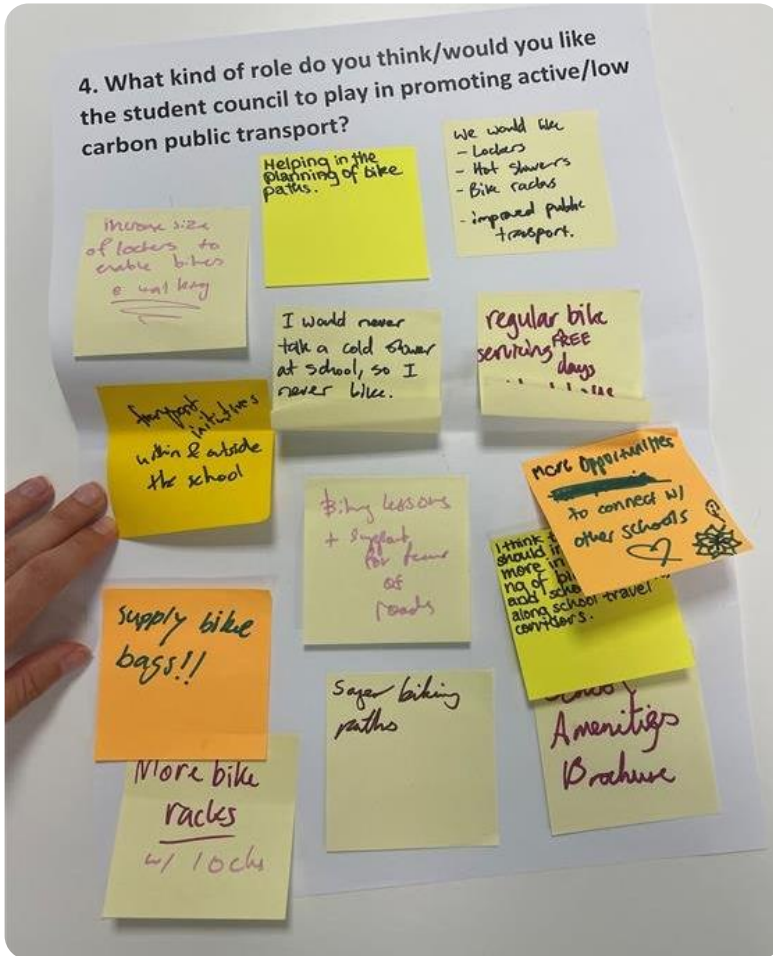 4. What kind of role do you think/would you like
the student council to play in promoting active/low
carbon public transport?
increase size
of lockers to
enable bikes
& walking
Helping in the
planning of bike
paths.
We would like
- Lockers
- Hot showers
- Bike racks
- improved public
transport.
I would never
take a cold shower
at school, so I
never bike.
regular bike
servicing FREE
days
transport
initiatives
within & outside
the school
Biking lessons
+ support
for fear
of
roads
More Opportunities
to connect w/
other schools
I think
should
more in
ng of
and
along school travel
corridors.
Supply bike
bags!!
Safer biking
paths
Amenities
Brochure
More bike
racks
w/ locks